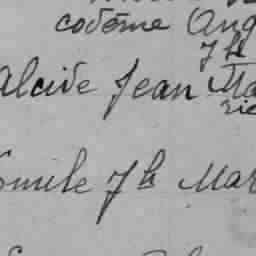 codème Ang
Jh
Alcide Jean Ma
rie
Emile Jh Mar